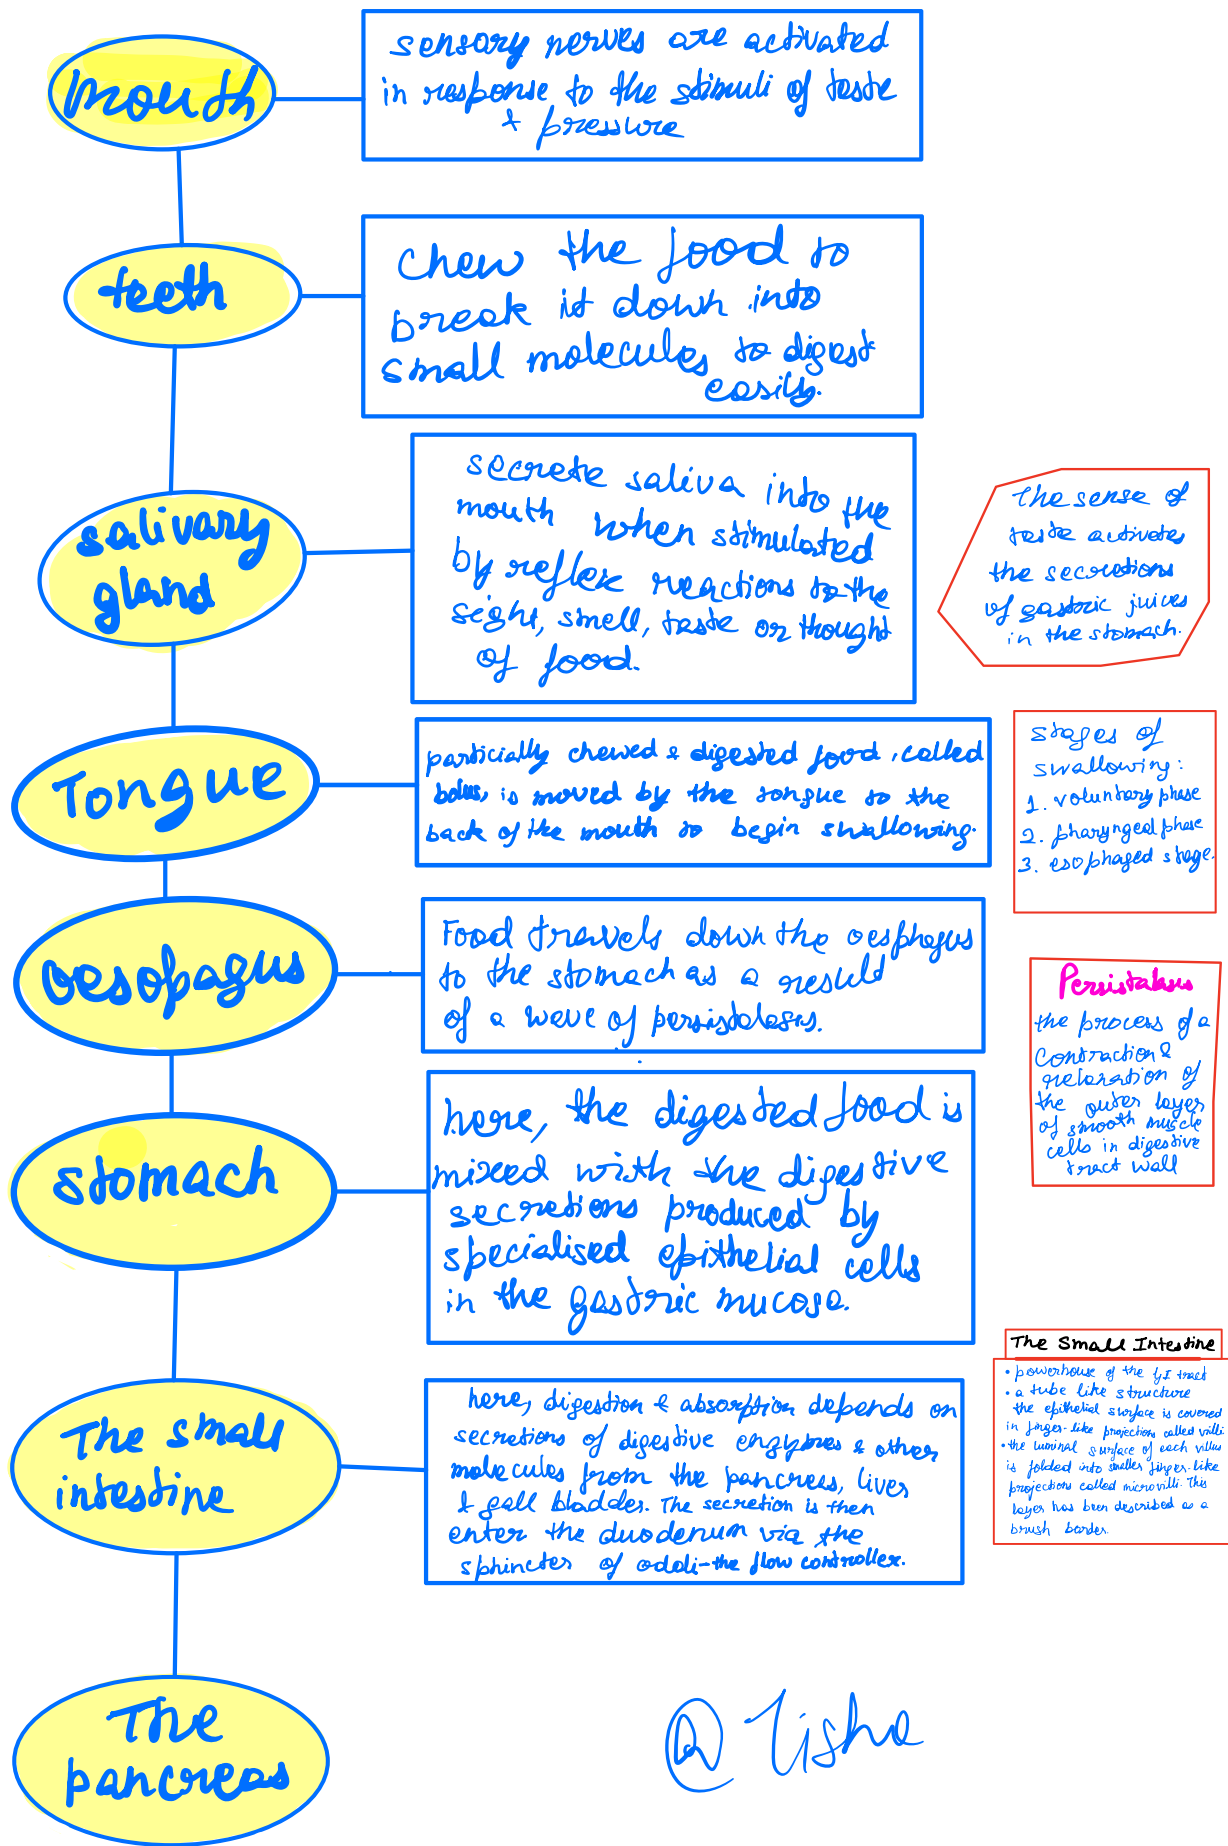 mouth
sensory nerves are activated
in response to the stimuli of taste
& pressure
teeth
Chew the food to
break it down into
small molecules to digest
easily.
salivary
gland
secrete saliva into the
mouth when stimulated
by reflex reactions to the
sight, smell, taste or thought
of food.
The sense of
taste activates
the secretions
of gastric juices
in the stomach.
Tongue
particially chewed & digested food, called
bolus, is moved by the tongue to the
back of the mouth to begin swallowing.
stages of
swallowing:
1. voluntary phase
2. pharyngeal phase
3. esophageal stage.
Oesopagus
Food travels down the oesphagus
to the stomach as a result
of a wave of peristalases.
Peristalases
the process of a
contraction &
relaxation of
the outer layer
of smooth muscle
cells in digestive
tract wall
stomach
here, the digested food is
mixed with the digestive
secretions produced by
specialised epithelial cells
in the gastric mucosa.
The small
intestine
here, digestion & absorption depends on
secretions of digestive enzymes & other
molecules from the pancreas, liver
& gall bladder. The secretion is then
enter the duodenum via the
sphincter of oddi-the flow controller.
The Small Intestine
• powerhouse of the GI tract
• a tube like structure
the epithelial surface is covered
in finger-like projections called villi.
• the luminal surface of each villus
is folded into smaller finger-like
projections called microvilli. This
layer has been described as a
brush border.
The
pancreas
@Tisha